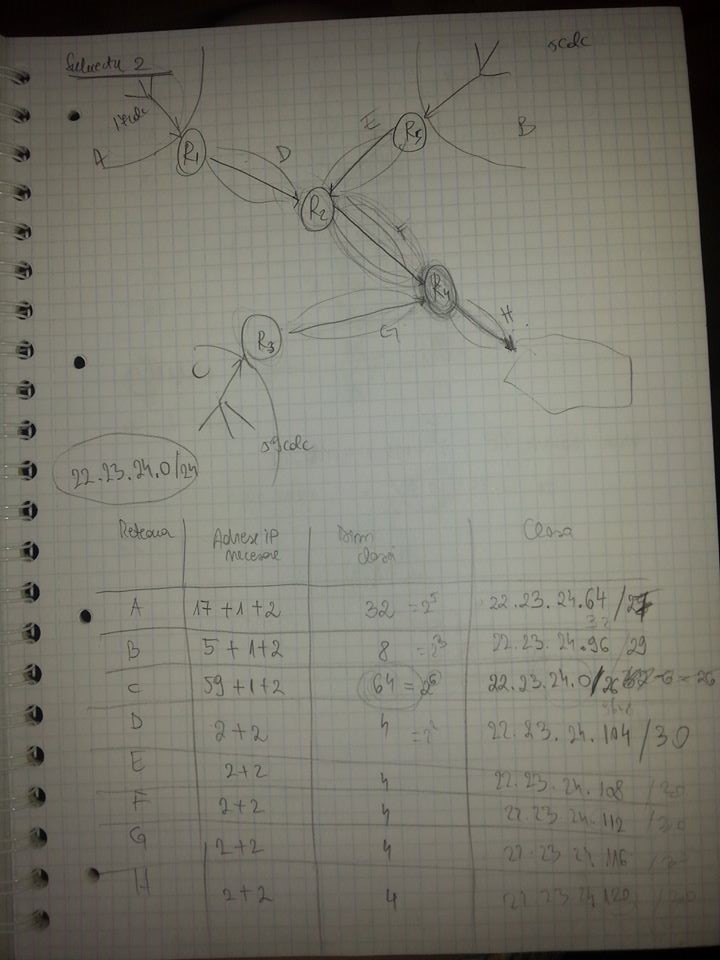 Subiectu 2
5cdc
17cdc
A
R1
D
E
R5
B
R2
F
R4
H
G
R3
C
59cdc
22.23.24.0/24
Reteaua Adrese IP necesare Dim clasă Clasa
A 17+1+2 32 = 2^5 22.23.24.64 /27
B 5+1+2 8 = 2^3 22.23.24.96 /29
C 59+1+2 64 = 2^6 22.23.24.0/26 32-6=26
D 2+2 4 = 2^2 22.23.24.104 /30
E 2+2 4 22.23.24.108 /30
F 2+2 4 22.23.24.112 /30
G 2+2 4 22.23.24.116 /30
H 2+2 4 22.23.24.120 /30